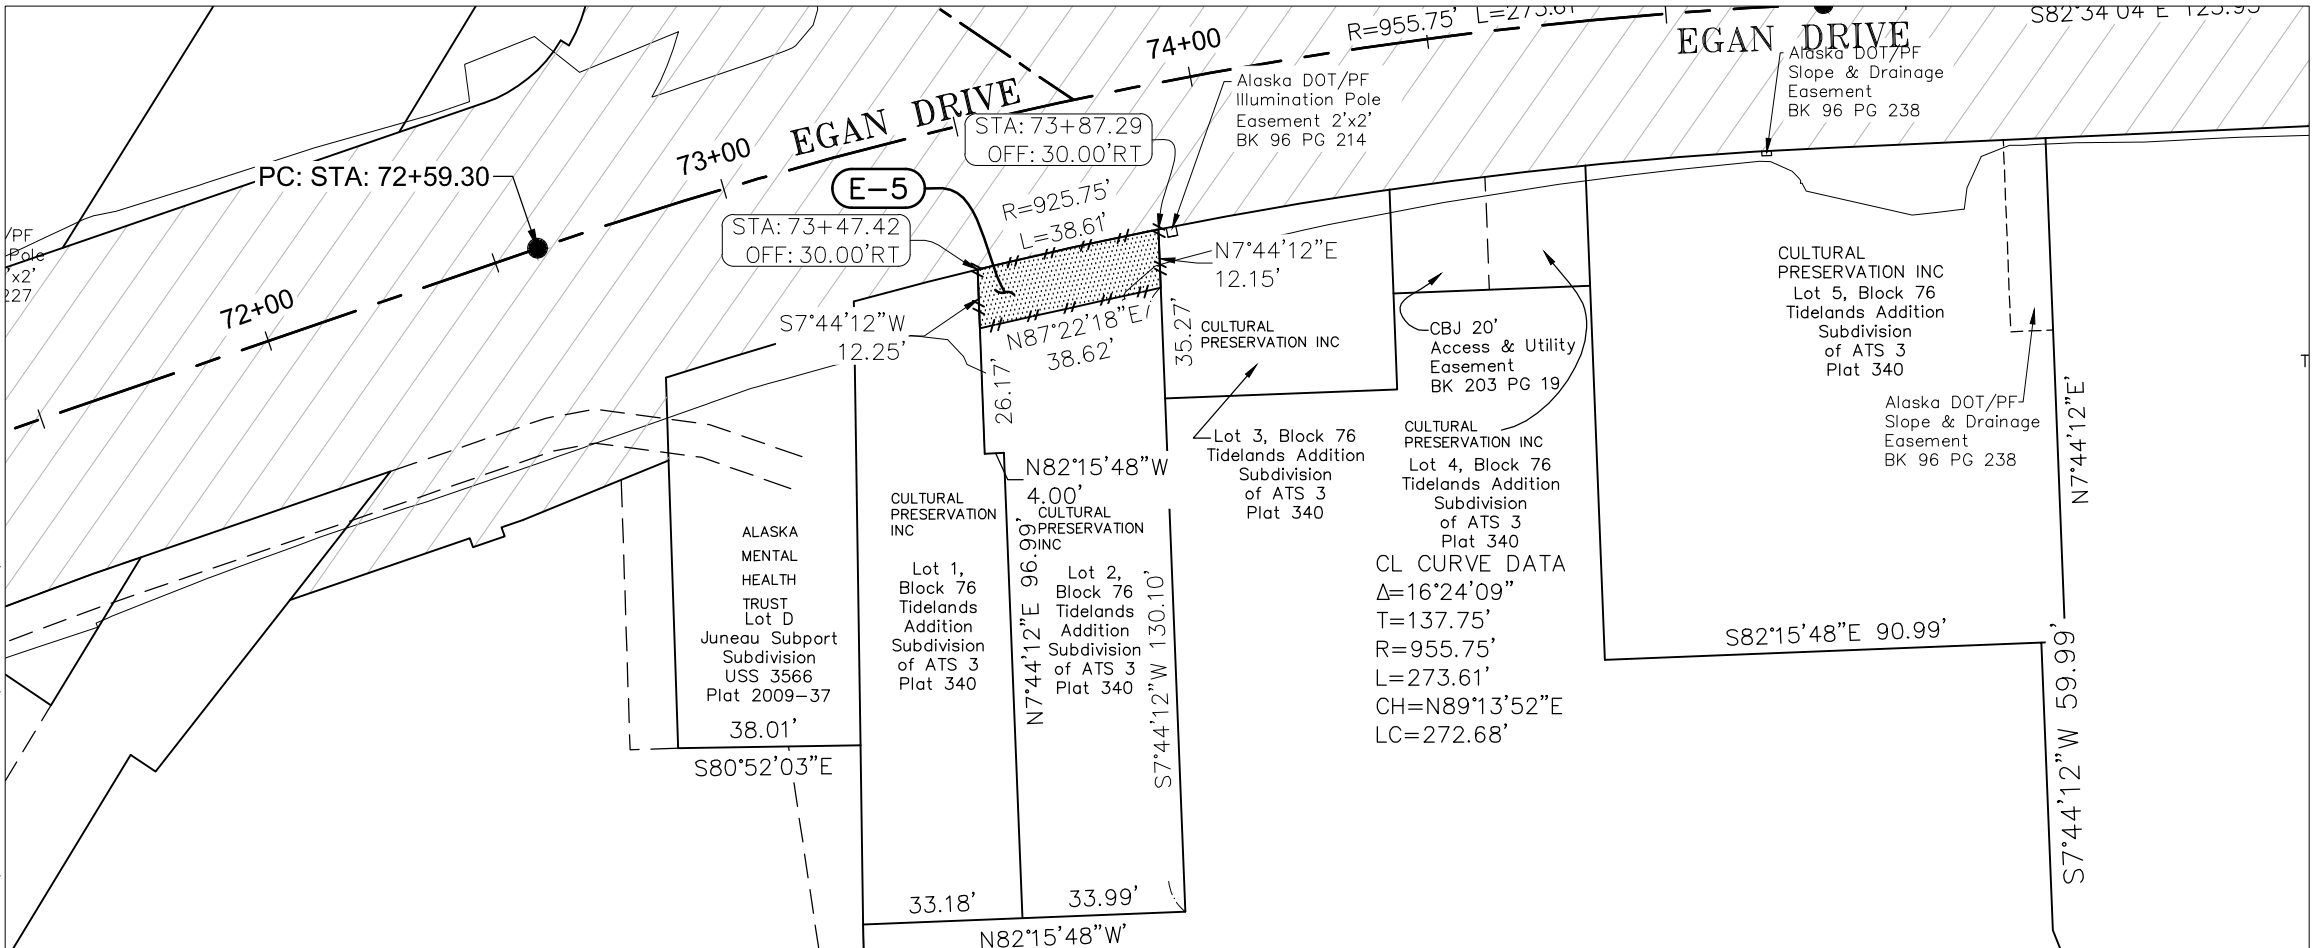 R=955.75’ L=273.61’
S82°34’04"E 125.95’
EGAN DRIVE
74+00
Alaska DOT/PF
Illumination Pole
Easement 2’x2’
BK 96 PG 214
Alaska DOT/PF
Slope & Drainage
Easement
BK 96 PG 238
EGAN DRIVE
STA: 73+87.29
OFF: 30.00’RT
73+00
PC: STA: 72+59.30
E-5
R=925.75’
L=38.61’
STA: 73+47.42
OFF: 30.00’RT
/PF
Pole
’x2’
227
N7°44’12”E
12.15’
72+00
S7°44’12”W
12.25’
N87°22’18”E
38.62’
26.17’
35.27’
CULTURAL
PRESERVATION INC
CBJ 20’
Access & Utility
Easement
BK 203 PG 19
CULTURAL
PRESERVATION INC
Lot 5, Block 76
Tidelands Addition
Subdivision
of ATS 3
Plat 340
T
Alaska DOT/PF
Slope & Drainage
Easement
BK 96 PG 238
N7°44’12”E’
Lot 3, Block 76
Tidelands Addition
Subdivision
of ATS 3
Plat 340
CULTURAL
PRESERVATION INC
Lot 4, Block 76
Tidelands Addition
Subdivision
of ATS 3
Plat 340
N82°15’48”W
4.00’
CULTURAL
PRESERVATION
INC
Lot 1,
Block 76
Tidelands
Addition
Subdivision
of ATS 3
Plat 340
CULTURAL
PRESERVATION
INC
Lot 2,
Block 76
Tidelands
Addition
Subdivision
of ATS 3
Plat 340
N7°44’12”E 96.99’
S7°44’12”W 130.10’
ALASKA
MENTAL
HEALTH
TRUST
Lot D
Juneau Subport
Subdivision
USS 3566
Plat 2009-37
38.01’
S80°52’03”E
CL CURVE DATA
Δ=16°24’09”
T=137.75’
R=955.75’
L=273.61’
CH=N89°13’52”E
LC=272.68’
S82°15’48”E 90.99’
S7°44’12”W 59.99’
33.18’
33.99’
N82°15’48”W’